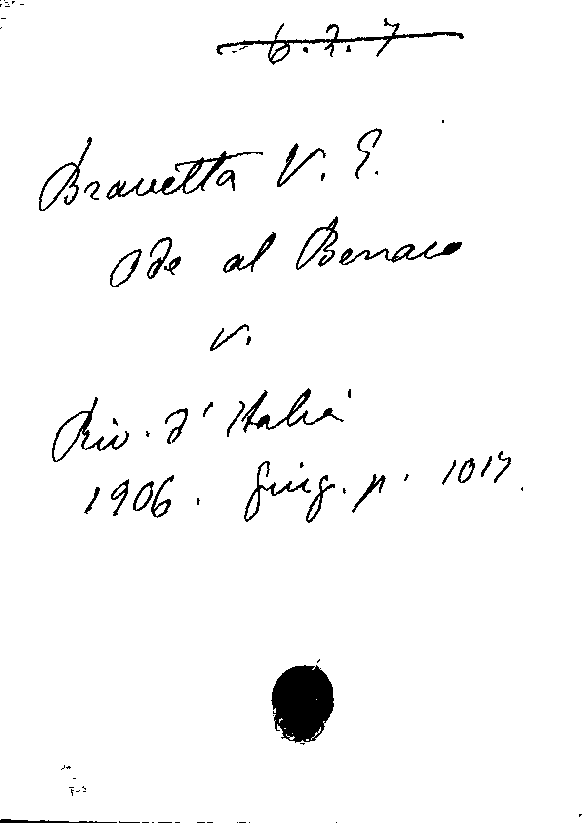 6.2.7
Bravetta V. E.
Ode al Benaco
v.
Riv. d'Italia
1906. Giug. p. 1017.